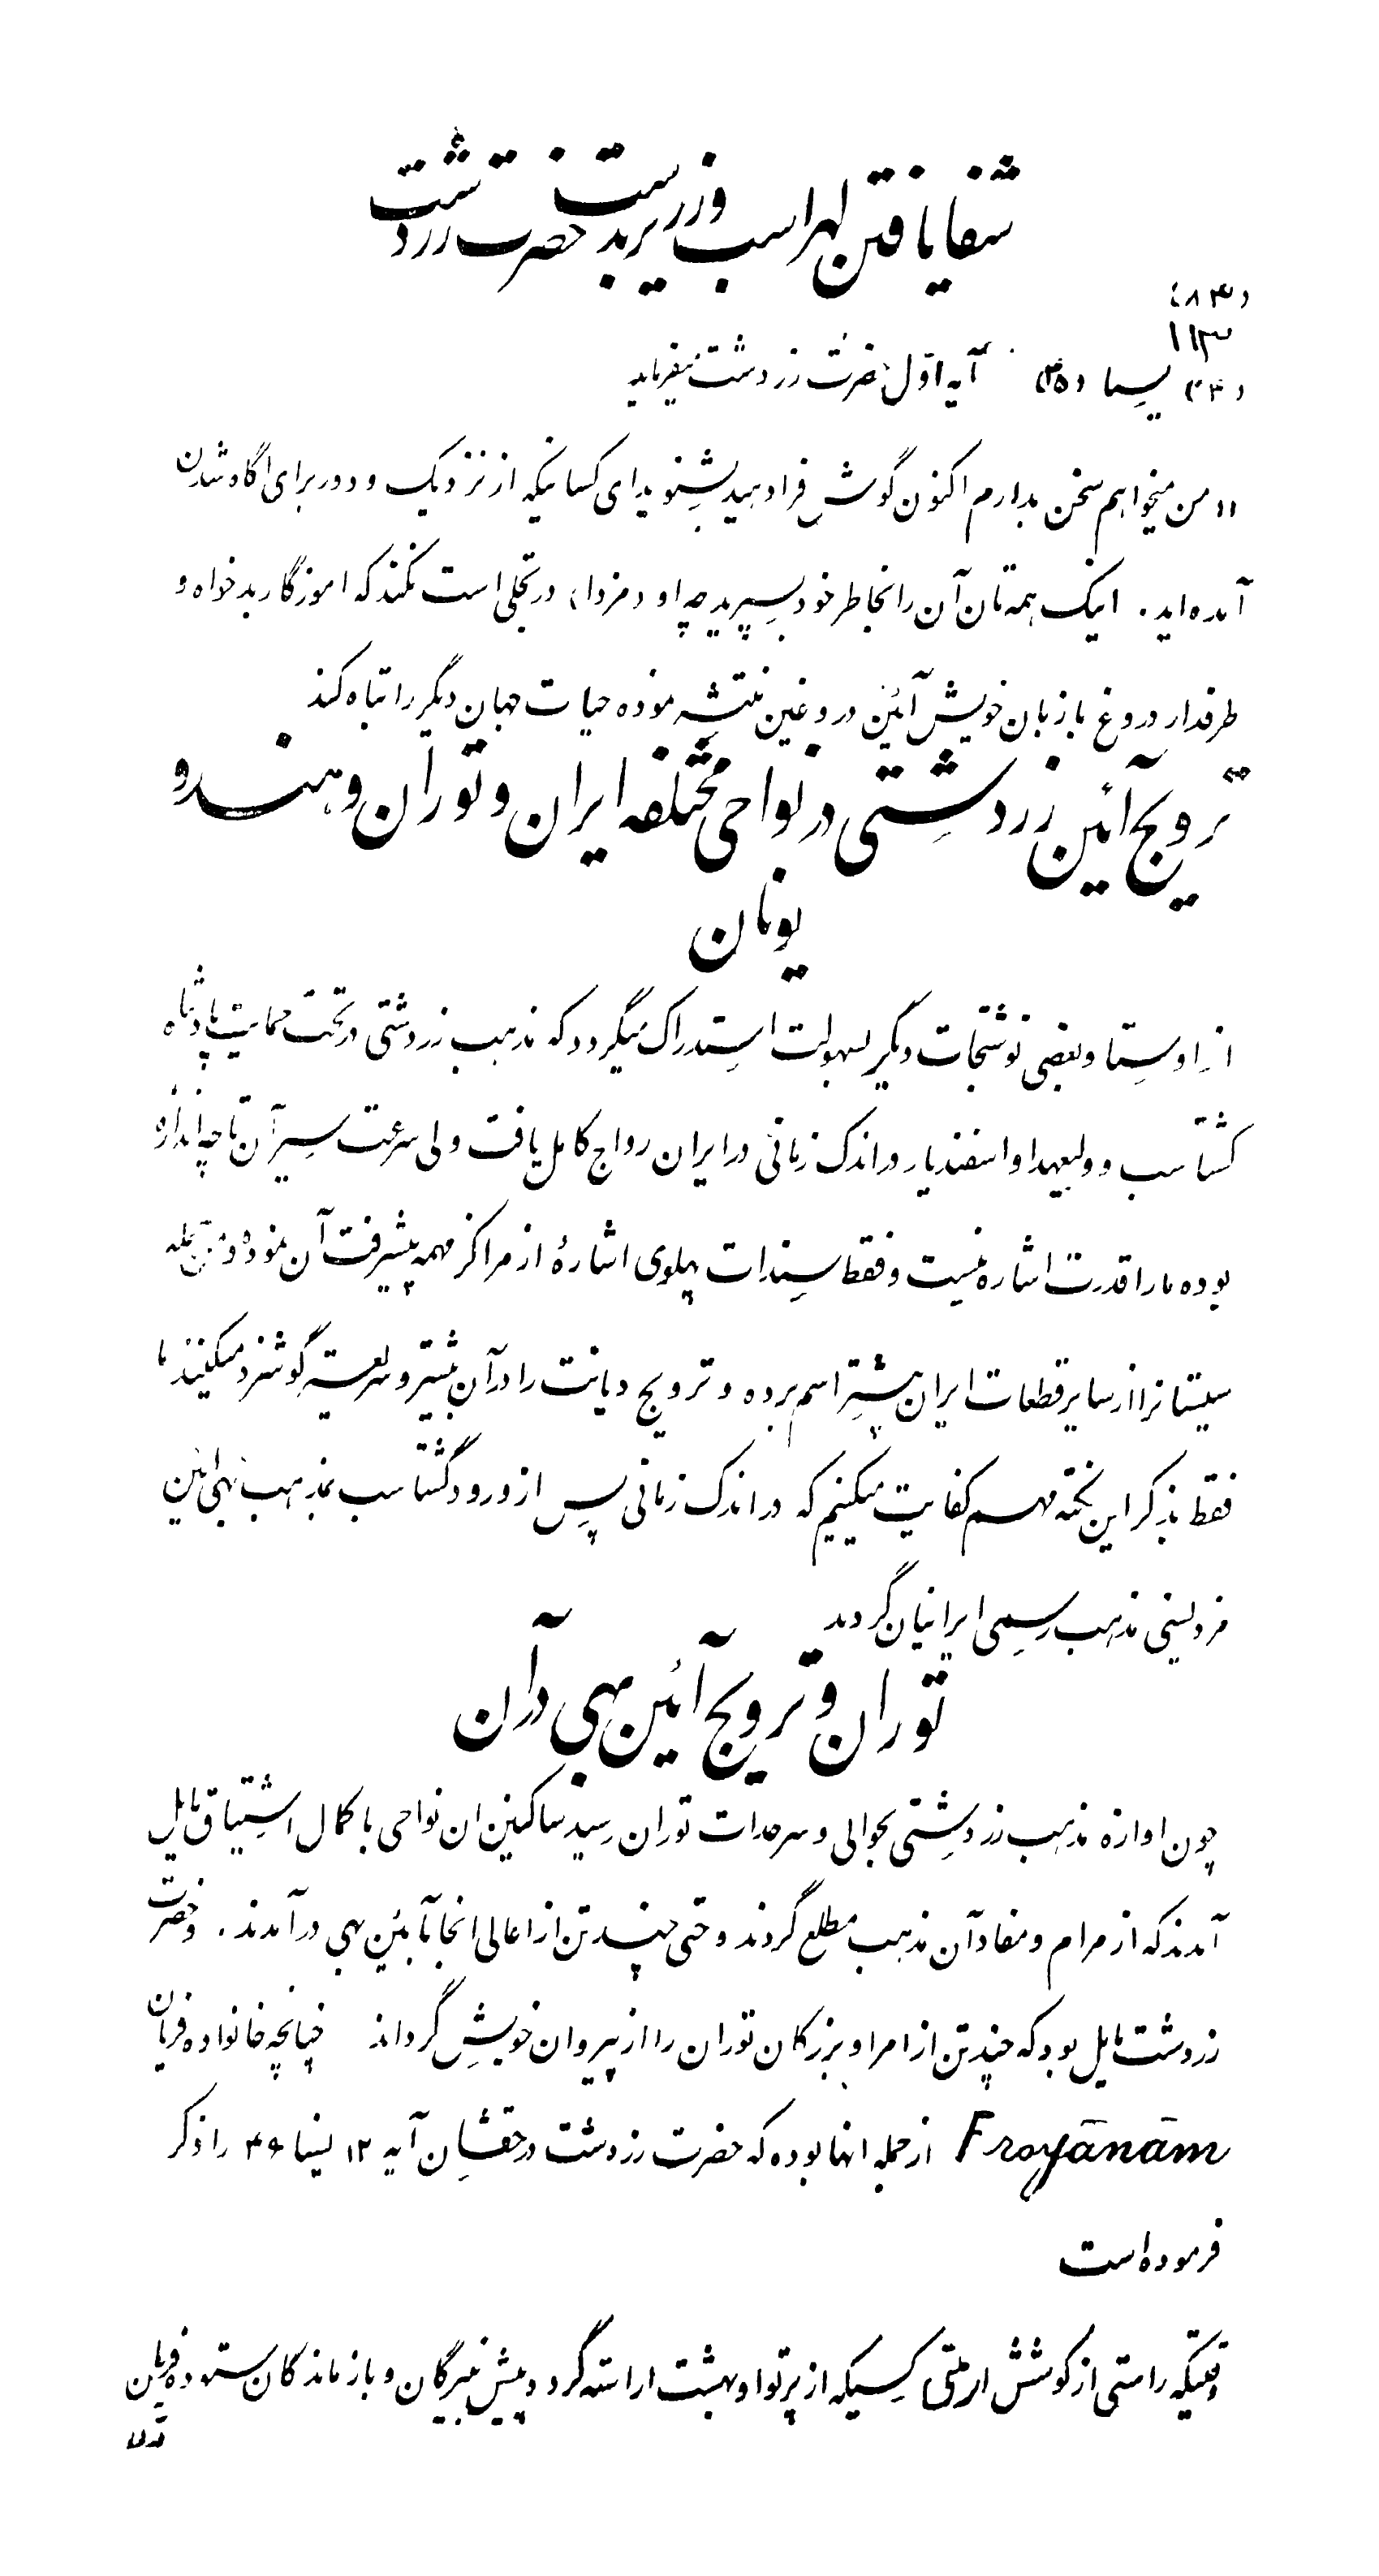 شفا یافتن لهراسب و زریر بدست حضرت زردشت
(۸۳)
۱۱۳
(۳۰) یسنا (۴۵) آیه اول حضرت زردشت میفرماید
«من میخواهم سخن بدارم اکنون گوش فرا دهید بشنوید ای کسانیکه از نزدیک و دور برای آگاه شدن
آمده‌اید. اینک همه‌تان آن را بخاطر خود بسپرید چه او (مزدا) در تجلی است نکند که اموزگار بدخواه و
طرفدار دروغ با زبان خویش آئین دروغین منتشر نموده حیات جهان دیگر را تباه کند
ترویج آئین زردشتی در نواحی مختلفه ایران و توران و هند و
یونان
از اوستا و بعضی نوشتجات دیگر بسهولت استدراک میگردد که مذهب زردشتی در تحت حمایت پادشاه
گشتاسب و ولیعهد او اسفندیار در اندک زمانی در ایران رواج کامل یافت ولی سرعت سیر آن تا چه اندازه
بوده ما را قدرت اشاره نیست و فقط سندات پهلوی اشارهٔ از مراکز مهمه پیشرفت آن نموده و
سیستانرا از سایر قطعات ایران بیشتر اسم برده و ترویج دیانت را در آن بیشتر و سریعتر گوشزد میکنند ما
فقط بذکر این نکته مهم کفایت میکنیم که در اندک زمانی پس از ورود گشتاسب بمذهب بهی ائین
مزدیسنی مذهب رسمی ایرانیان گردید
توران و ترویج آئین بهی در آن
چون اوازه مذهب زردشتی بحوالی و سرحدات توران رسید ساکنین ان نواحی با کمال اشتیاق مایل
آمدند که از مرام و مفاد آن مذهب مطلع گردند و حتی چند تن از اعالی انجا بآئین بهی در آمدند. و حضرت
زردشت مایل بود که چند تن از امرا و بزرگان توران را از پیروان خویش گرداند چنانچه خانواده فریان
Froyānām از جمله انها بوده که حضرت زردشت در حقشان آیه ۱۲ یسنا ۴۶ را ذکر
فرموده است
وقتیکه راستی از کوشش ارمتی کسیکه از پرتو او بهشت اراسته گردد پیش نبیرگان و بازماندگان ستوده فریان